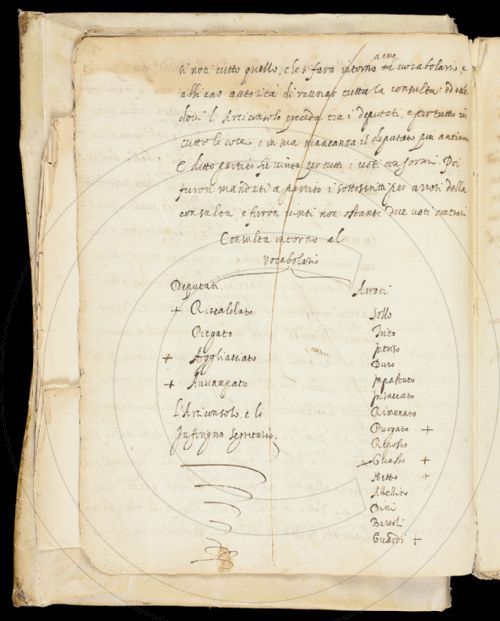 si noti tutto quello, che si farà intorno ad esso vocabolario, e
abbiano autorità di raunar tutta la consulta; di
dove l'Arciconsolo preceda tra i deputati, e per tutto in
tutte le cose, e in sua mancanza il deputato più anziano
E detto partito fu vinto per tutti i voti conformi. Poi
furon mandati a partito i sottoscritti per arroti della
consulta, e furon vinti non ostanti due voti contrari
Consulta intorno al
vocabolario
Deputati.
+ Riscaldato
Ripieno
+ Agghiacciato
+ Avvampato
L'Arciconsolo, e lo
Inferigno segretario.
Arroti
Sollo
Trito
Intriso
Duro
Impastato
Insaccato
Rimenato
Purgato +
Riposto
Guasto +
Netto +
Abellito
Dini
Bardi
Guardi +